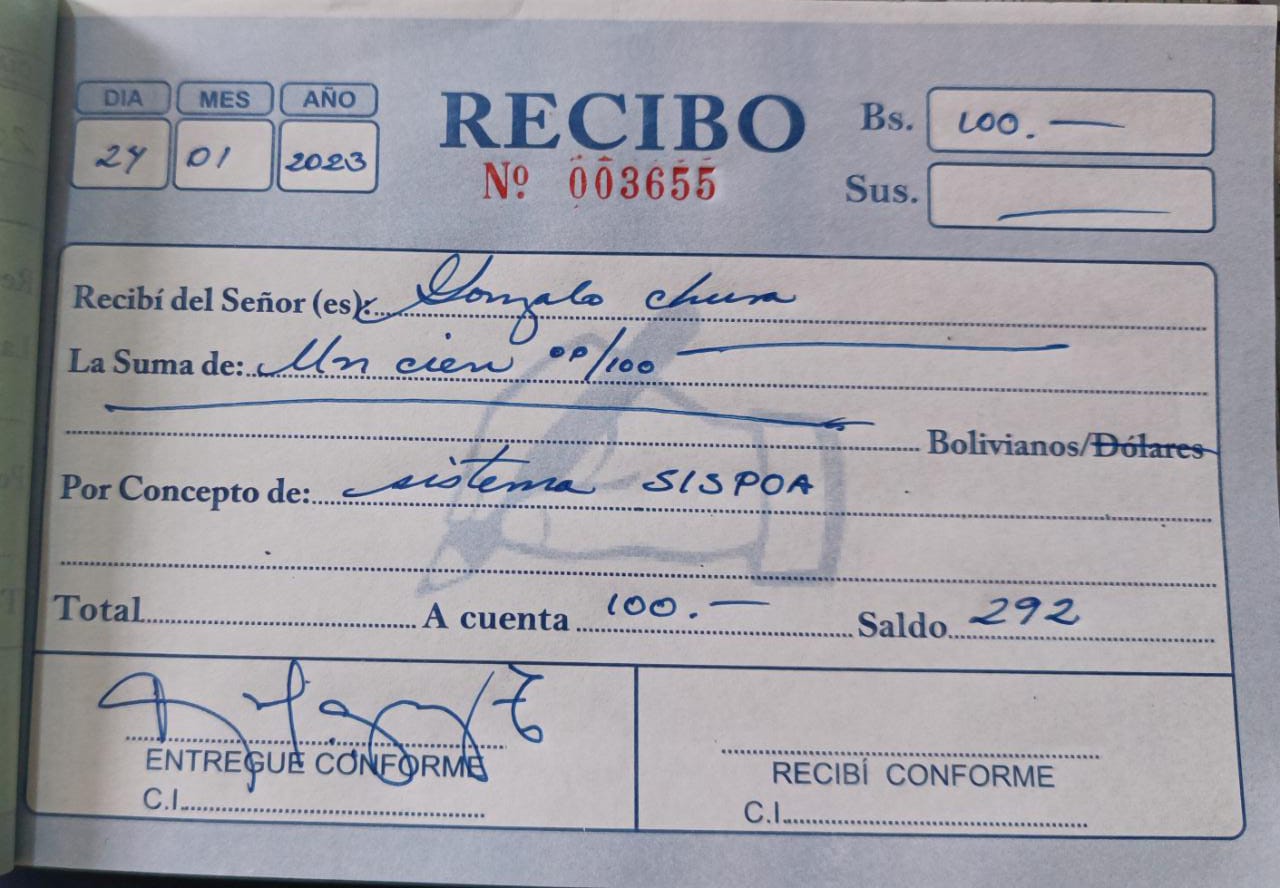 DIA MES AÑO
24 01 2023
RECIBO
Nº 003655
Bs. 100.—
Sus. —
Recibí del Señor (es): Gonzalo chura
La Suma de: Un cien 00/100
Bolivianos/Dólares
Por Concepto de: sistema SISPOA
Total A cuenta 100.— Saldo 292
ENTREGUE CONFORME
C.I.
RECIBÍ CONFORME
C.I.